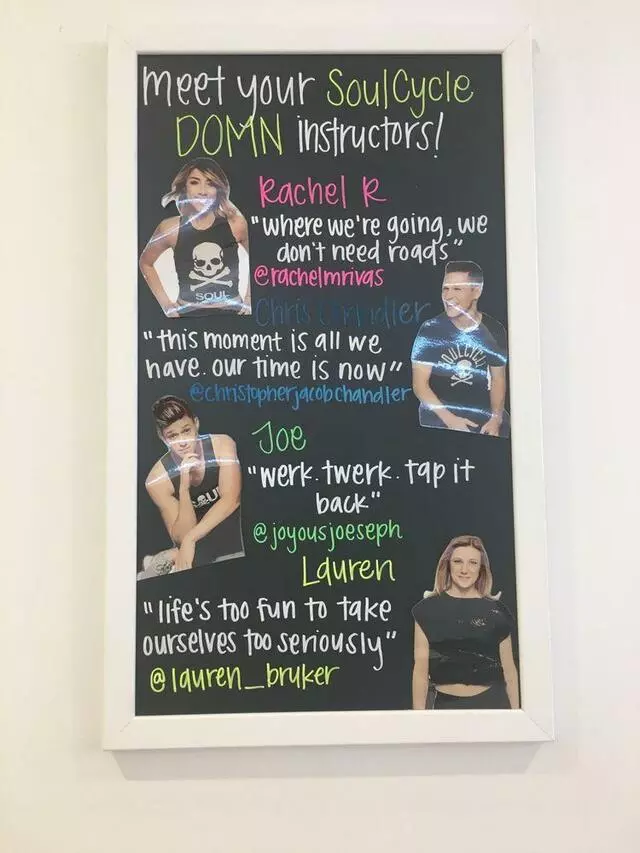 meet your SoulCycle
DOMN instructors!
Rachel R
"where we're going, we
don't need roads"
@rachelmrivas
SOUL
Chris Chandler
"this moment is all we
have. our time is now"
@christopherjacobchandler
SOULCYCLE
Joe
"werk. twerk. tap it
back"
@joyousjoeseph
SOUL
Lauren
"life's too fun to take
ourselves too seriously"
@lauren_bruker